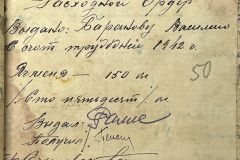 Расходной Ордер
Выдано: Баранову Василию
В счет трудодней 1942 г.
Ячменя — 150 кг
50
/Сто пятьдесят/ кг
Выдал:
Получил: